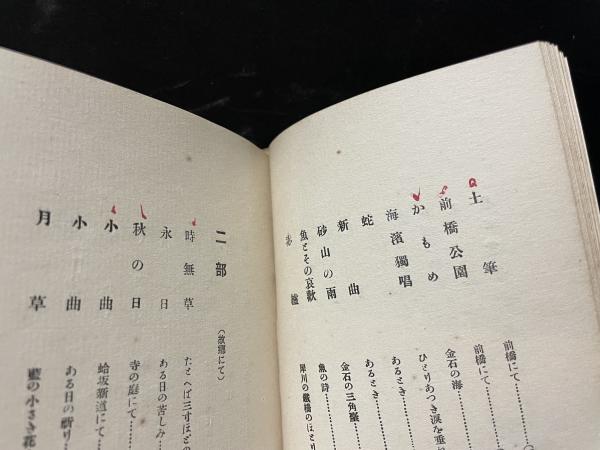 土筆 前橋にて…………
前橋公園 前橋にて…………
かもめ 金石の海…………
海濱獨唱 ひとりあつき涙を垂
蛇 あるとき…………
新曲 あるとき…………
砂山の雨 金石の三角
魚とその哀歡 魚の詩…………
犀川の鐵橋のほとり
二部 (故郷にて)
時無草 たとへば三すほどの
永日 ある日の苦しみ…………
秋の日 寺の庭にて…………
小曲 蛤坂新道にて…………
小曲 ある日の祈り…………
月草 藍の小さき花